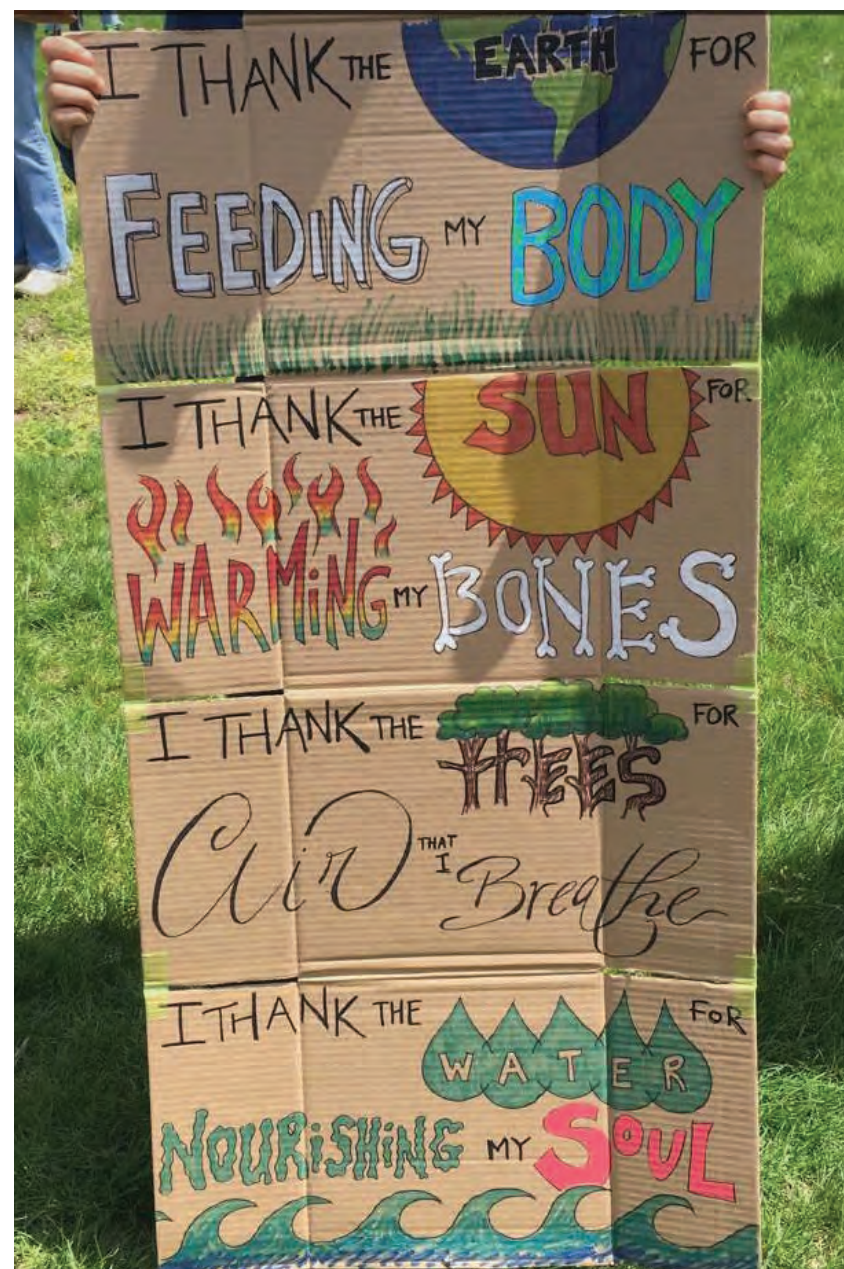 I THANK THE EARTH FOR
FEEDiNG MY BODY
I THANK THE SUN FOR
WARMiNG MY BONES
I THANK THE trEES FOR
Air THAT I Breathe
I THANK THE WATER FoR
NOURiSHiNG MY SOUL